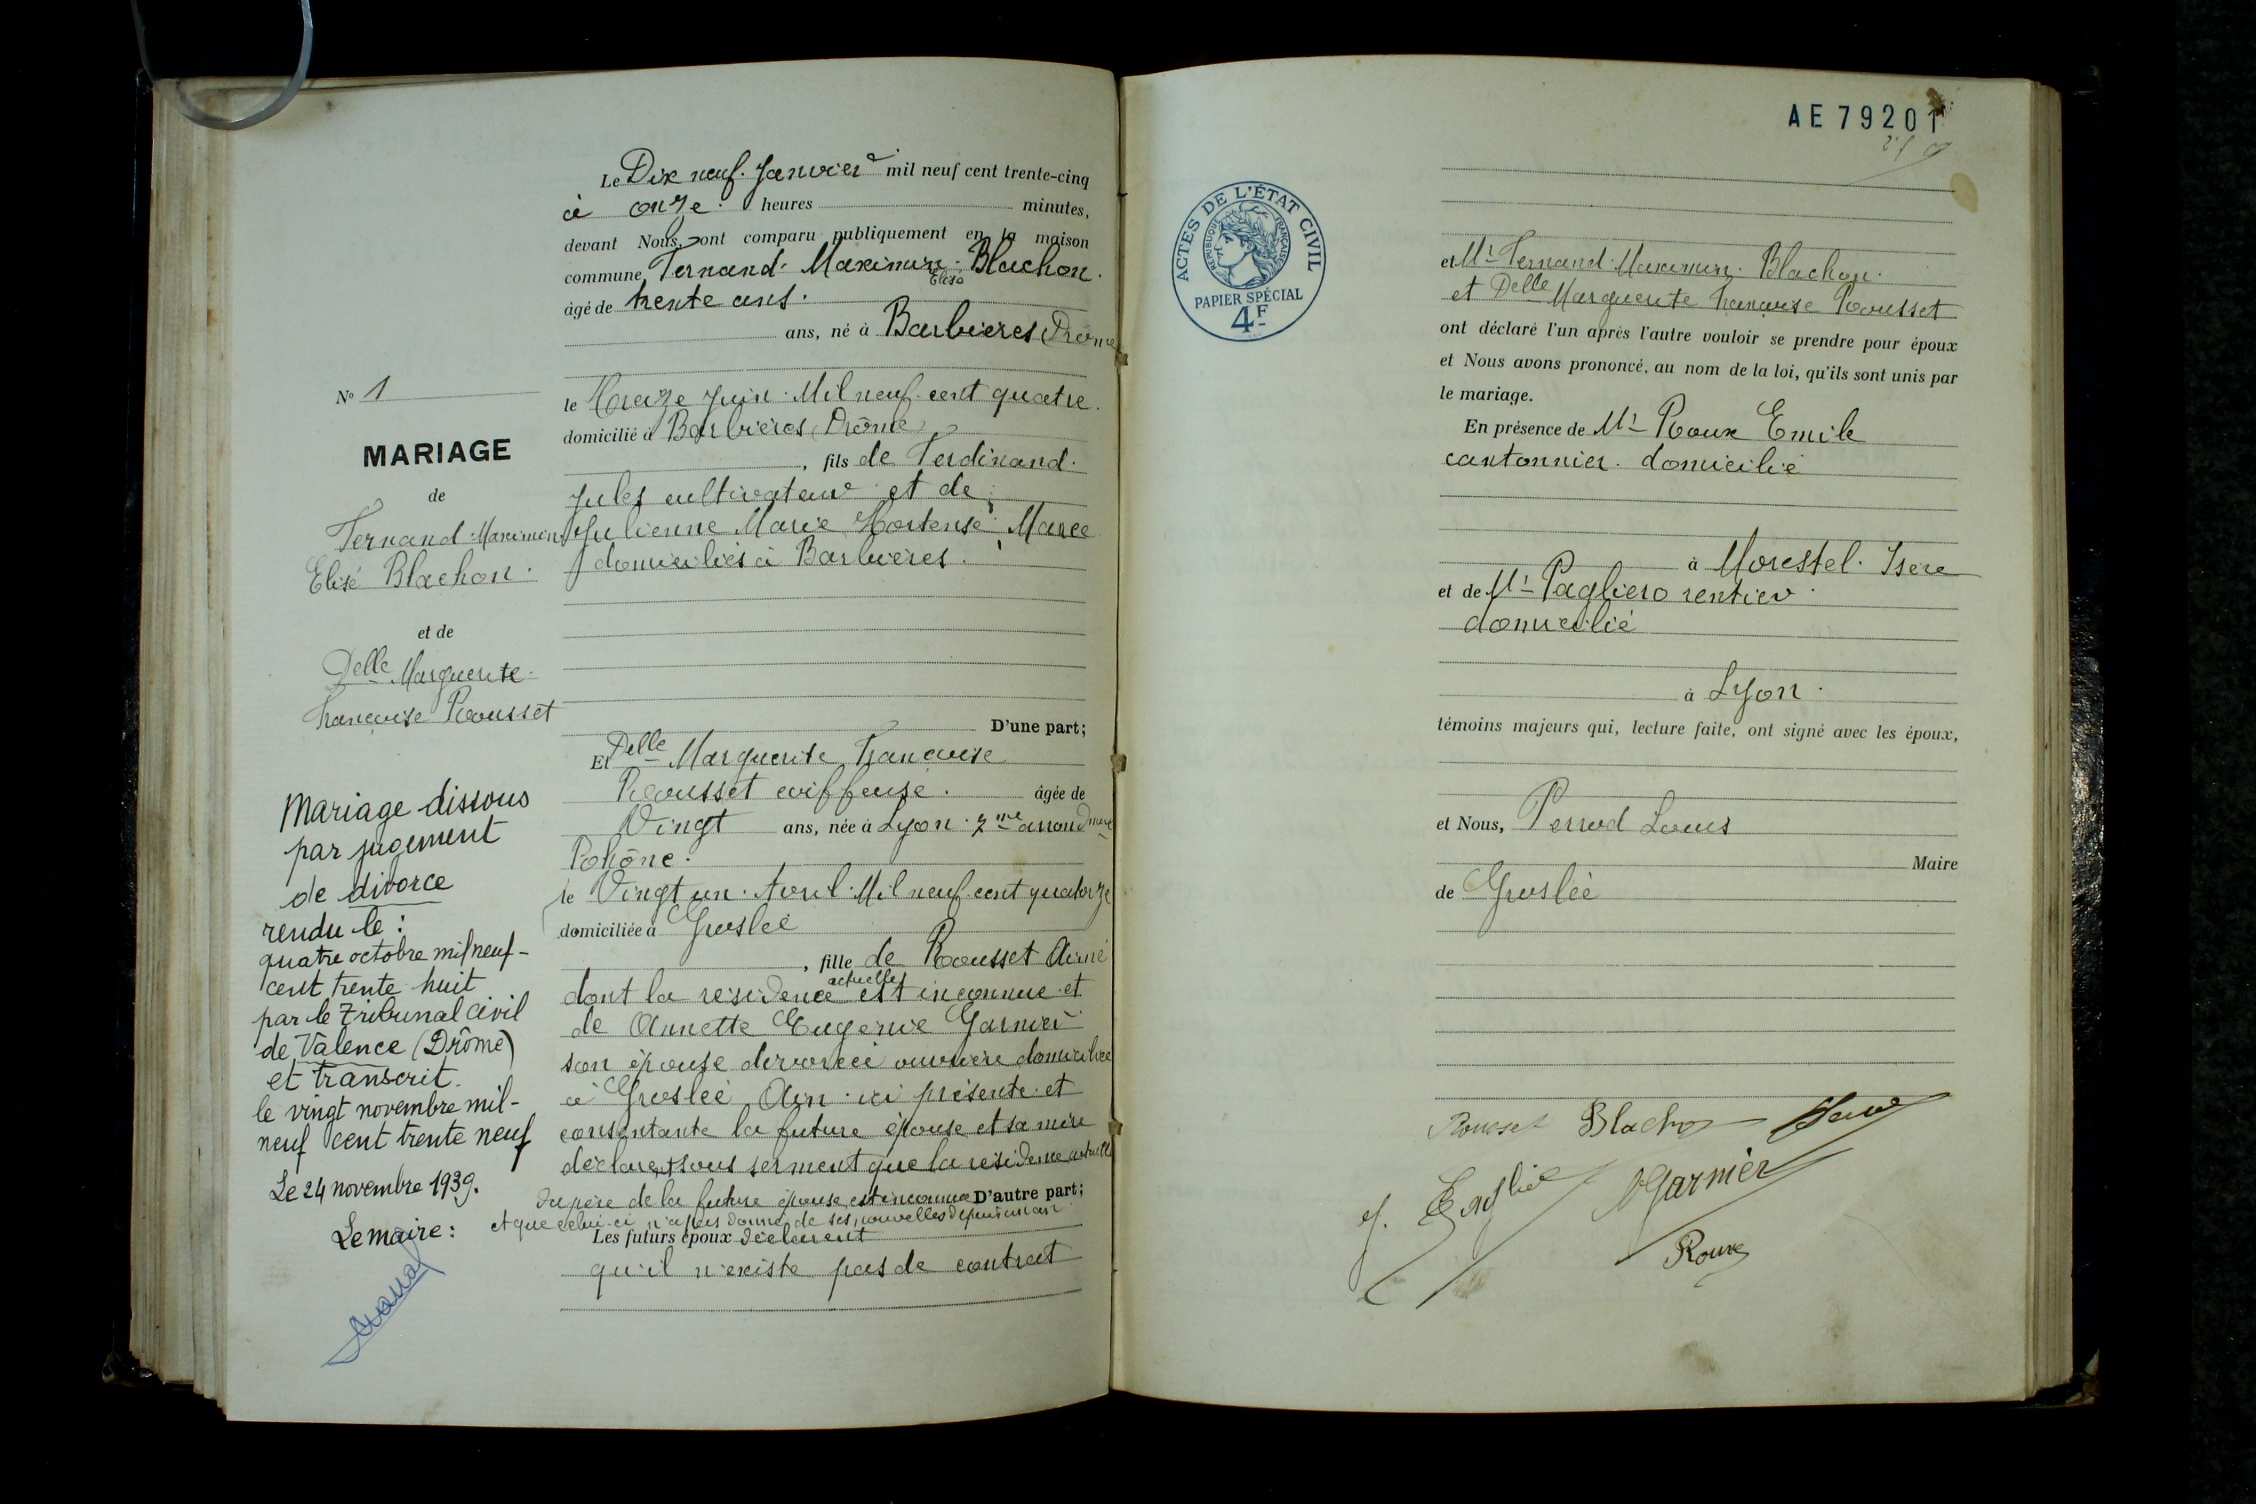 N° 1
MARIAGE
de
Fernand Maximin
Elisé Blachon.
et de
Delle Marguerite
Francoise Rousset
Mariage dissous
par jugement
de divorce
rendu le :
quatre octobre mil neuf-
cent trente huit
par le Tribunal Civil
de Valence (Drôme)
et transcrit.
le vingt novembre mil-
neuf cent trente neuf
Le 24 novembre 1939.
Le maire :
Le Dix neuf Janvier mil neuf cent trente-cinq
à onze heures minutes,
devant Nous, ont comparu publiquement en la maison
commune, Fernand Maximin Blachon.
Elisé
âgé de trente ans.
ans, né à Barbières (Drôme
le treize Juin Mil neuf cent quatre
domicilié à Barbières (Drôme)
, fils de Ferdinand
Jules cultivateur et de
Julienne Marie Hortense Marce
domiciliés à Barbières.
D'une part;
Et Delle Marguerite Francoise
Rousset coiffeuse. âgée de
Vingt ans, née à Lyon 7me arrondment
Rohône.
le Vingt un Avril Mil neuf cent quatorze
domiciliée à Groslée
, fille de Rousset Aimé
dont la residence actuelle est inconnue et
de Annette Eugenie Garnier
son épouse divorcée ouvrière domiciliée
à Groslée Ain ici présente et
consentante la future épouse et sa mère
déclarent sous serment que la résidence actuelle
du père de la future épouse est inconnue D'autre part;
et que celui-ci n'a pas donné de ses nouvelles depuis un an
Les futurs époux déclarent
qu'il n'existe pas de contrat
AE 79201
ACTES DE L'ÉTAT CIVIL
RÉPUBLIQUE FRANÇAISE
PAPIER SPÉCIAL
4F
et Mr Fernand Maximin Blachon.
et Delle Marguerite Francoise Rousset
ont déclaré l'un après l'autre vouloir se prendre pour époux
et Nous avons prononcé, au nom de la loi, qu'ils sont unis par
le mariage.
En présence de Mr Roux Emile
cantonnier domicilié
à Morestel Isère
et de Mr Pagliero rentier
domicilié
à Lyon.
témoins majeurs qui, lecture faite, ont signé avec les époux,
et Nous, Perrod Louis
Maire
de Groslée
Rousset Blachon
Garnier
Roux